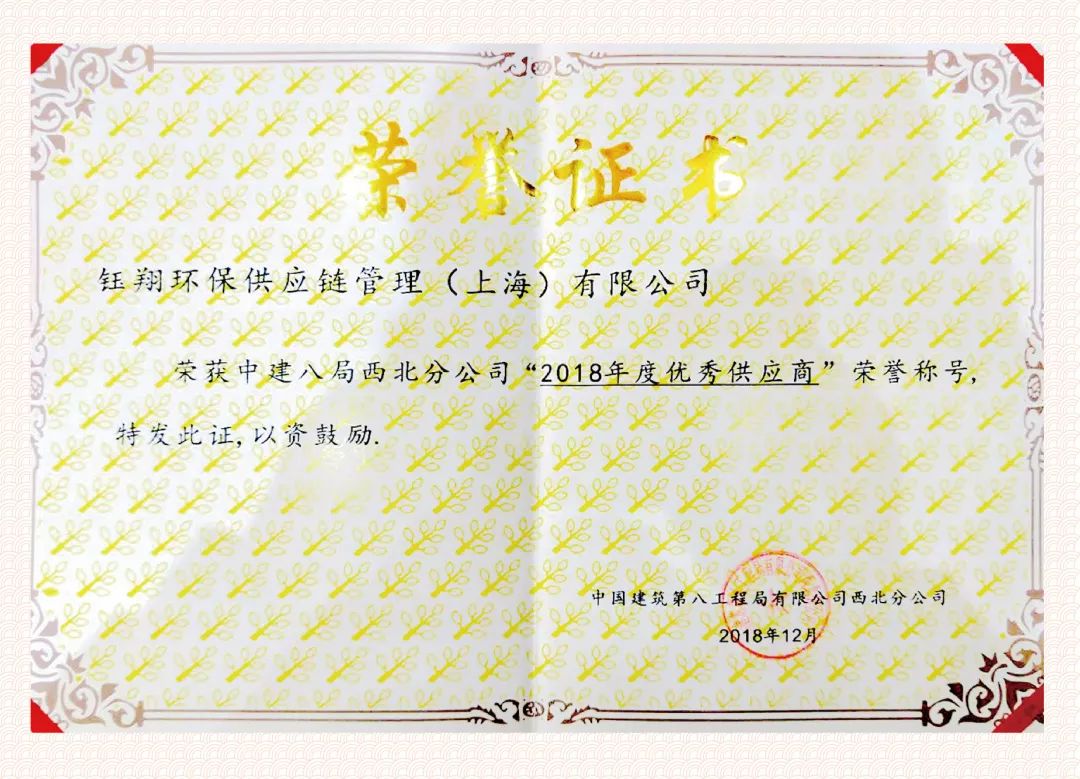 荣誉证书
钰翔环保供应链管理（上海）有限公司
荣获中建八局西北分公司“2018年度优秀供应商”荣誉称号,
特发此证,以资鼓励.
中国建筑第八工程局有限公司西北分公司
2018年12月